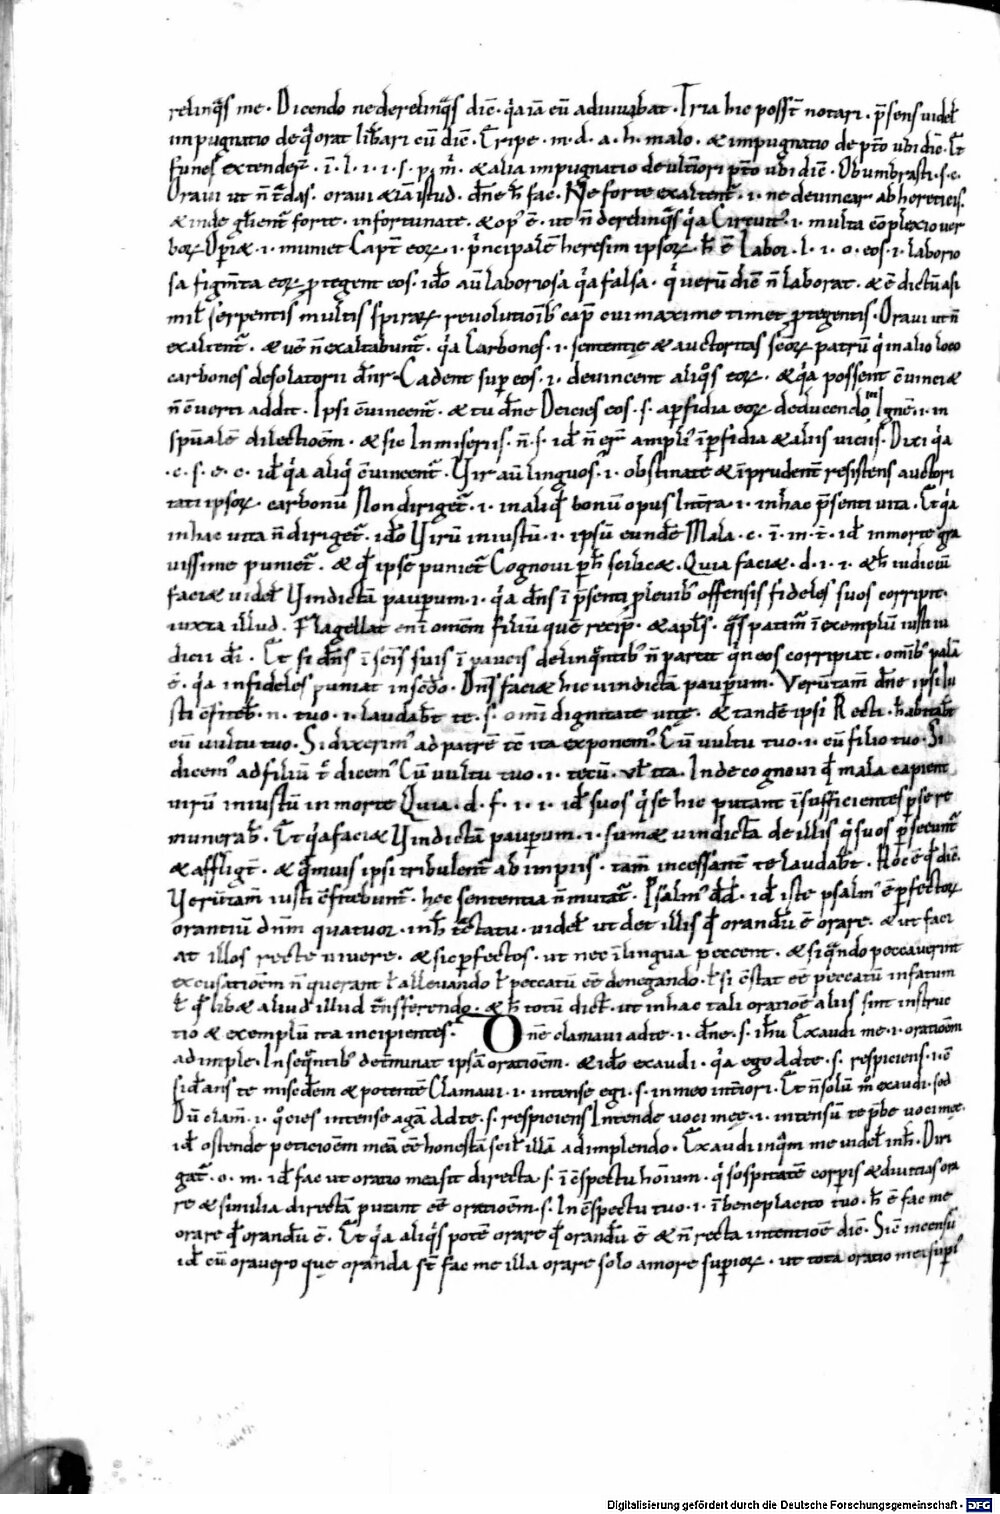 relinq̄s me. Dicendo ne derelinq̄s dic̄. q̄a iā eū adiuuabat. Tria hic posst̄ notari. p̄sens uidel̄
inpugnatio de q̄ orat lib̄ari cū dic̄. Eripe. m. d. a. h. malo. & impugnatio de p̄to ubi dic̄. Et
funes extender̄. ī. l. i. i. s. p. m̄. & alia impugnatio de ult̄iori p̄to ubi dic̄. Obumbrasti. s. c.
Oraui ut n̄ t̄das. oraui & iā istud. dn̄e h̄ fac. Ne forte exaltent̄. i. ne deuincar ab hereticis.
& inde gl̄ient̄ forte. infortunate. & op' ē. ut n̄ derelinq̄s q̄a Circuit'. i. multa cōplexio uer
boꝝ. Op̄iæ. i. muniet Capt̄ eoꝝ. i. p̄ncipalē heresim ipsoꝝ. h̄ ē Labor. l. i. o. eos. i. laborio
sa figm̄ta eoꝝ ꝓtegent eos. id̄o aū laboriosa q̄a falsa. q̄ uerū dic̄ n̄ laborat. & ē dictū a si
mil̄ serpentis multis spiraꝝ reuolutiōib' cap̄ cui maxime timet ꝓtegentis. Oraui ut n̄
exaltent̄. & uē n̄ exaltabunt̄. q̄a Carbones. i. sententię & auctoritas sc̄oꝝ patrū q̄ in alio loco
carbones desolatorii dn̄r. Cadent sup̄ eos. i. deuincent aliq̄s eoꝝ. & q̄a possent ēuinci &
n̄ ēuerti addit. Ipsi ēuincent̄. & tu dn̄e Deicies eos. s. a p̄fidia eoꝝ deducendo In ignē. i. in
sp̄ualē dilectiōem. & sic In miseriis. n̄. s. id̄ n̄ er̄ ampli' ī p̄fidia & aliis uiciis. Dixi q̄a
.c. s. e. c. id̄ q̄a aliq̄ ēuincent̄. Vir aū linguos'. i. obstinate & īprudent̄ resistens auctori
tati ipsoꝝ. carbonū Non diriget̄. i. in aliq̄d bonū opus In t̄ra. i. in hac p̄senti uita. Et q̄a
in hac uita n̄ diriget̄. id̄o Virū iniustū. i. ipsū eundē Mala. c. ī. m. t̄. id̄ in morte gra
uissime puniet̄. & q̄d ipse puniet̄ Cognoui p̄ h̄ scilicæ. Quia faciæ. d. i. i. & h̄ iudiciū
faciæ uidel̄ Vindictā paup̄um. i. q̄a dn̄s ī p̄senti p̄ leuib' offensis fideles suos corripit.
iuxta illud. Flagellat eni ōmem filiū quē recip̄. & apl̄s. q̄s patim̄ ī exemplū iusti iu
dicii di. Et si dn̄s ī sc̄is suis ī paucis delinq̄ntib' n̄ parcit q̄n eos corripiat. om̄ib' palā
ē. q̄a infideles puniat in sc̄do. Dn̄s faciæ hic uindictā paup̄um. Verūtam̄ dn̄e ipsi iu
sti c̄fiteb̄. n. tuo. i. laudab̄t te. s. omī dignitate uitę. & tandē ipsi Recti. habitab̄t
cū uultu tuo. Si dixerim' ad patrē tē ita exponem'. Cū uultu tuo. i. cū filio tuo. Si
dicem' ad filiū t̄ dicem' Cū uultu tuo. i. tecū. ul̄ ita. Inde cognoui q̄d mala capient
uirū iniustū in morte Quia. d. f. i. i. id̄ suos q̄ se hic putant īsufficientes p̄ se re
munerab̄. Et q̄a faciæ Vindictā paup̄um. i. sumæ uindictā de illis q̄ suos p̄secunt̄
& affligt̄. & q̄muis ipsi tribulent̄ ab impiis. tam̄ incessant̄ te laudab̄t. Hoc ē q̄d dic̄.
Verūtam̄ iusti c̄fitebunt̄. hec sententia n̄ mutat̄. Psalm' dd̄. id̄ iste psalm' ē p̄fectoꝝ
orantiū dn̄m quatuor. in h̄ t̄ctatu. uidel̄ ut det illis q̄d orandū ē orare. & ut faci
at illos recte uiuere. & sic p̄fectos. ut nec ī lingua peccent. & si q̄ndo peccauerint
excusatiōem n̄ querant l̄ alleuando l̄ peccatū eē denegando. l̄ si c̄stat eē peccatū in fatum
l̄ q̄d lib& aliud illud t̄nsferendo. & h̄ totū dicit. ut in hac tali oratiōe aliis sint instruc
tio & exemplū ita incipientes. Dn̄e clamaui ad te. i. dn̄e. s. ihu Exaudi me. i. oratiōem
adimple. In seq̄ntib' det̄minat ipsā oratiōem. & id̄o exaudi. q̄a ego Ad te. s. respiciens. i. c̄
sid̄ans te mis̄edem & potentē Clamaui. i. intense egi. s. in meo int̄iori. Et n̄ solū m̄ exaudi. sed
Dū clam̄. i. q̄cies intense agā Ad te. s. respiciens Intende uoci meę. i. intensū te p̄be uoci meę.
id̄ ostende peticiōem meā eē honestā scil̄ illā adimplendo. Exaudi inq̄m me uidel̄ in h̄. Diri
gat̄. o. m. id̄ fac ut oratio mea sit directa. s. ī c̄spectu hōium. q̄ sospitatē corp̄is & diuitias ora
re & similia directā putant eē oratiōem. s. In c̄spectu tuo. i. ī beneplacito tuo. h̄ ē fac me
orare q̄d orandū ē. Et q̄a aliq̄s potē orare q̄d orandū ē & n̄ recta intentiōe dic̄. Sic̄ incensū
id̄ cū orauero quę oranda st̄ fac me illa orare solo amore sup̄ioꝝ. ut tota oratio mea sup̄i'
Digitalisierung gefördert durch die Deutsche Forschungsgemeinschaft - DFG